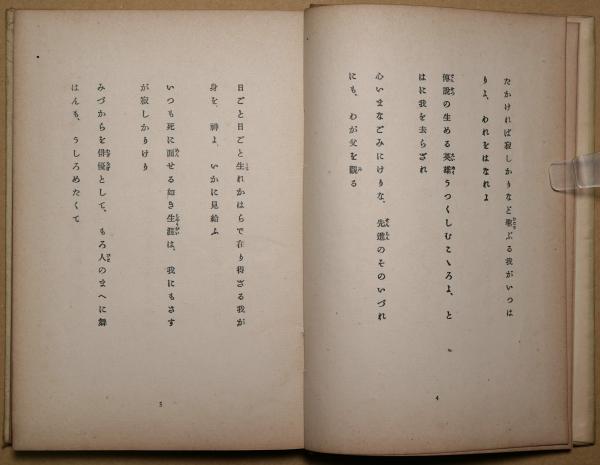 たかければ寂しかりなど聖ぶる我がいつは
りよ、われをはなれよ
傳説の生める英雄うつくしむこゝろよ、と
はに我を去らざれ
心いまなごみにけりな、先進のそのいづれ
にも、わが父を觀る
4
日ごと日ごと生れかはらで在り得ざる我が
身を、神よ、いかに見給ふ
いつも死に面せる如き生涯は、我にもさす
が寂しかりけり
みづからを俳優として、もろ人のまへに舞
はんも、うしろめたくて
5